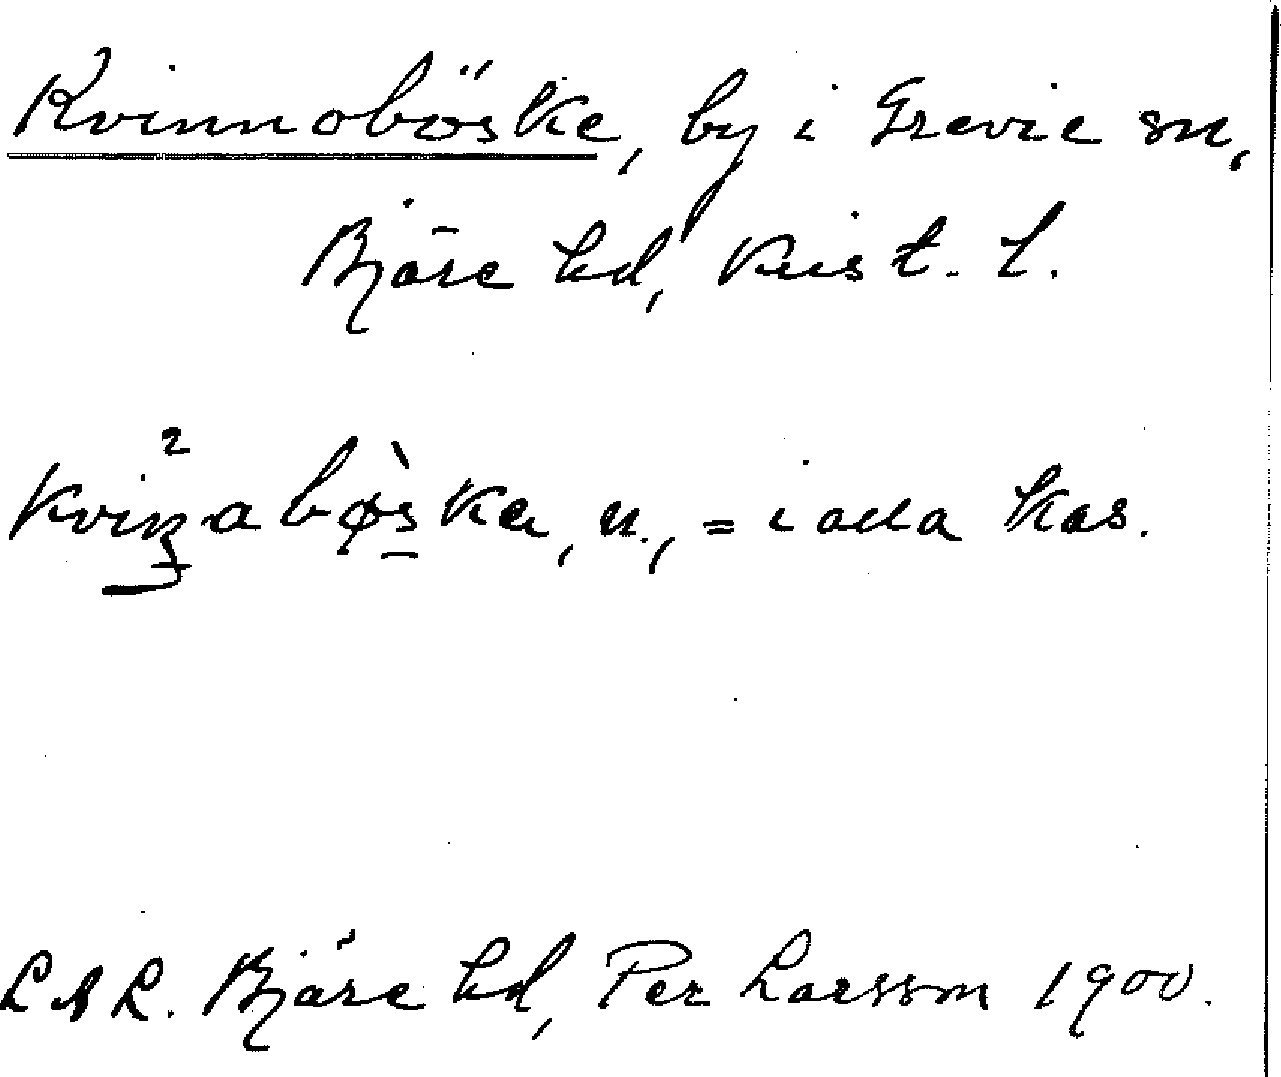 Kvinnoböske, by i Grevie sn,
Bjäre hd, Krist. l.
kvin̲abø̀s̲ka, n., = i alla kas.
LAL. Bjäre hd, Per Larsson 1900.